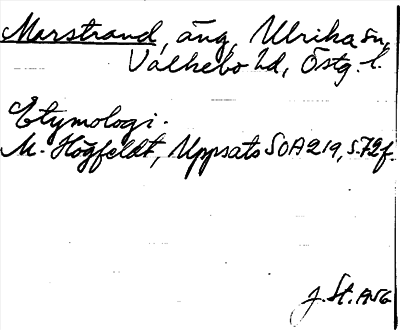 Marstrand, äng, Ulrika sn,
Valkebo hd, Östg. l.
Etymologi.
M. Högfeldt, Uppsats SOA 219, s. 72 f.
J. St.